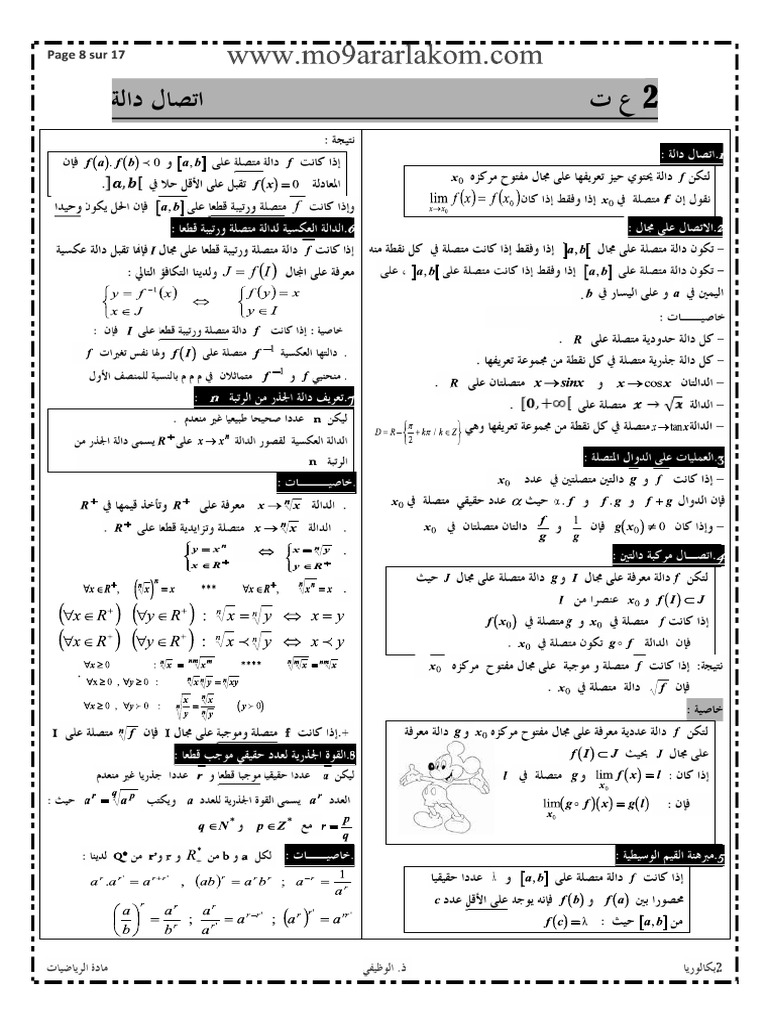 Page 8 sur 17
www.mo9ararlakom.com
2 ع ت
اتصال دالة
1.اتصال دالة :
لتكن f دالة يحتوي حيز تعريفها على مجال مفتوح مركزه x₀
نقول إن f متصلة في x₀ إذا وفقط إذا كان lim_{x→x₀} f(x) = f(x₀)
2.الاتصال على مجال :
– تكون دالة متصلة على مجال ]a,b[ إذا وفقط إذا كانت متصلة في كل نقطة منه
– تكون دالة متصلة على [a,b] إذا وفقط إذا كانت متصلة على ]a,b[ ، على
اليمين في a و على اليسار في b.
خاصيـــــات :
– كل دالة حدودية متصلة على R .
– كل دالة جذرية متصلة في كل نقطة من مجموعة تعريفها .
– الدالتان x→cosx و x→sinx متصلتان على R .
– الدالة x→√x متصلة على [0,+∞[ .
– الدالة x→tanx متصلة في كل نقطة من مجموعة تعريفها وهي D = R−{π/2 + kπ / k∈Z}
3.العمليات على الدوال المتصلة :
– إذا كانت f و g دالتين متصلتين في عدد x₀
فإن الدوال f+g و f.g و α.f حيث α عدد حقيقي متصلة في x₀
– وإذا كان g(x₀)≠0 فإن 1/g و f/g دالتان متصلتان في x₀
4.اتصـــال مركبة دالتين :
لتكن f دالة معرفة على مجال I و g دالة متصلة على مجال J حيث
f(I)⊂J و x₀ عنصرا من I
إذا كانت f متصلة في x₀ و g متصلة في f(x₀)
فإن الدالة g∘f تكون متصلة في x₀ .
نتيجة: إذا كانت f متصلة و موجبة على مجال مفتوح مركزه x₀
فإن √f دالة متصلة في x₀ .
خاصية :
لتكن f دالة عددية معرفة على مجال مفتوح مركزه x₀ و g دالة معرفة
على مجال J بحيث f(I)⊂J
إذا كان : lim_{x₀} f(x) = l و g متصلة في l
فإن : lim_{x₀} (g∘f)(x) = g(l)
5.مبرهنة القيم الوسيطية :
إذا كانت f دالة متصلة على [a,b] و λ عددا حقيقيا
محصورا بين f(a) و f(b) فإنه يوجد على الأقل عدد c
من [a,b] حيث : f(c)=λ
نتيجة :
إذا كانت f دالة متصلة على [a,b] و f(a).f(b)≺0 فإن
المعادلة f(x)=0 تقبل على الأقل حلا في ]a,b[.
وإذا كانت f متصلة رتيبة قطعا على [a,b] فإن الحل يكون وحيدا
6.الدالة العكسية لدالة متصلة ورتيبة قطعا :
إذا كانت f دالة متصلة ورتيبة قطعا على مجال I فإنها تقبل دالة عكسية
معرفة على المجال J = f(I) ولدينا التكافؤ التالي :
{ y = f⁻¹(x) ⇔ { f(y) = x
x∈J y∈I
خاصية : إذا كانت f دالة متصلة ورتيبة قطعا على I فإن :
. دالتها العكسية f⁻¹ متصلة على f(I) ولها نفس تغيرات f
. منحنيي f و f⁻¹ متماثلان في م م م بالنسبة للمنصف الأول
7.تعريف دالة الجذر من الرتبة n :
ليكن n عددا صحيحا طبيعيا غير منعدم .
الدالة العكسية لقصور الدالة x→xⁿ على R⁺ يسمى دالة الجذر من
الرتبة n
خاصيـــــات :
. الدالة x→ⁿ√x معرفة على R⁺ وتأخذ قيمها في R⁺
. الدالة x→ⁿ√x متصلة وتزايدية قطعا على R⁺ .
. { y = xⁿ ⇔ { x = ⁿ√y
x∈R⁺ y∈R⁺
∀x∈R⁺, (ⁿ√x)ⁿ = x *** ∀x∈R⁺, ⁿ√xⁿ = x .
(∀x∈R⁺) (∀y∈R⁺) : ⁿ√x = ⁿ√y ⇔ x = y
(∀x∈R⁺) (∀y∈R⁺) : ⁿ√x ≺ ⁿ√y ⇔ x ≺ y
∀x≥0 : ⁿ√x = ⁿᵐ√xᵐ **** ⁿ√ᵐ√x = ⁿᵐ√x
∀x≥0 , ∀y≥0 : ⁿ√x ⁿ√y = ⁿ√xy
∀x≥0 , ∀y≻0 : ⁿ√(x/y) = ⁿ√x / ⁿ√y (y≻0)
+.إذا كانت f متصلة وموجبة على مجال I فإن ⁿ√f متصلة على I
8.القوة الجذرية لعدد حقيقي موجب قطعا :
ليكن a عددا حقيقيا موجبا قطعا و r عددا جذريا غير منعدم
العدد aʳ يسمى القوة الجذرية للعدد a ويكتب aʳ = q√aᵖ حيث :
r = p/q مع p∈Z* و q∈N*
خاصيـــــات : لكل a و b من R₊* و r و r' من Q* لدينا :
aʳ.aʳ' = aʳ⁺ʳ' , (ab)ʳ = aʳbʳ ; a⁻ʳ = 1/aʳ
(a/b)ʳ = aʳ/bʳ ; aʳ/aʳ' = aʳ⁻ʳ' ; (aʳ)ʳ' = aʳʳ'
2بكالوريا
ذ. الوظيفي
مادة الرياضيات